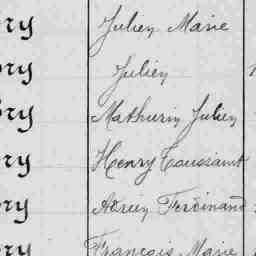 ory Julien Marie
ory Julien
ory Mathurin Julien
ory Henry Toussaint
ory Ferdinand
ory François Marie